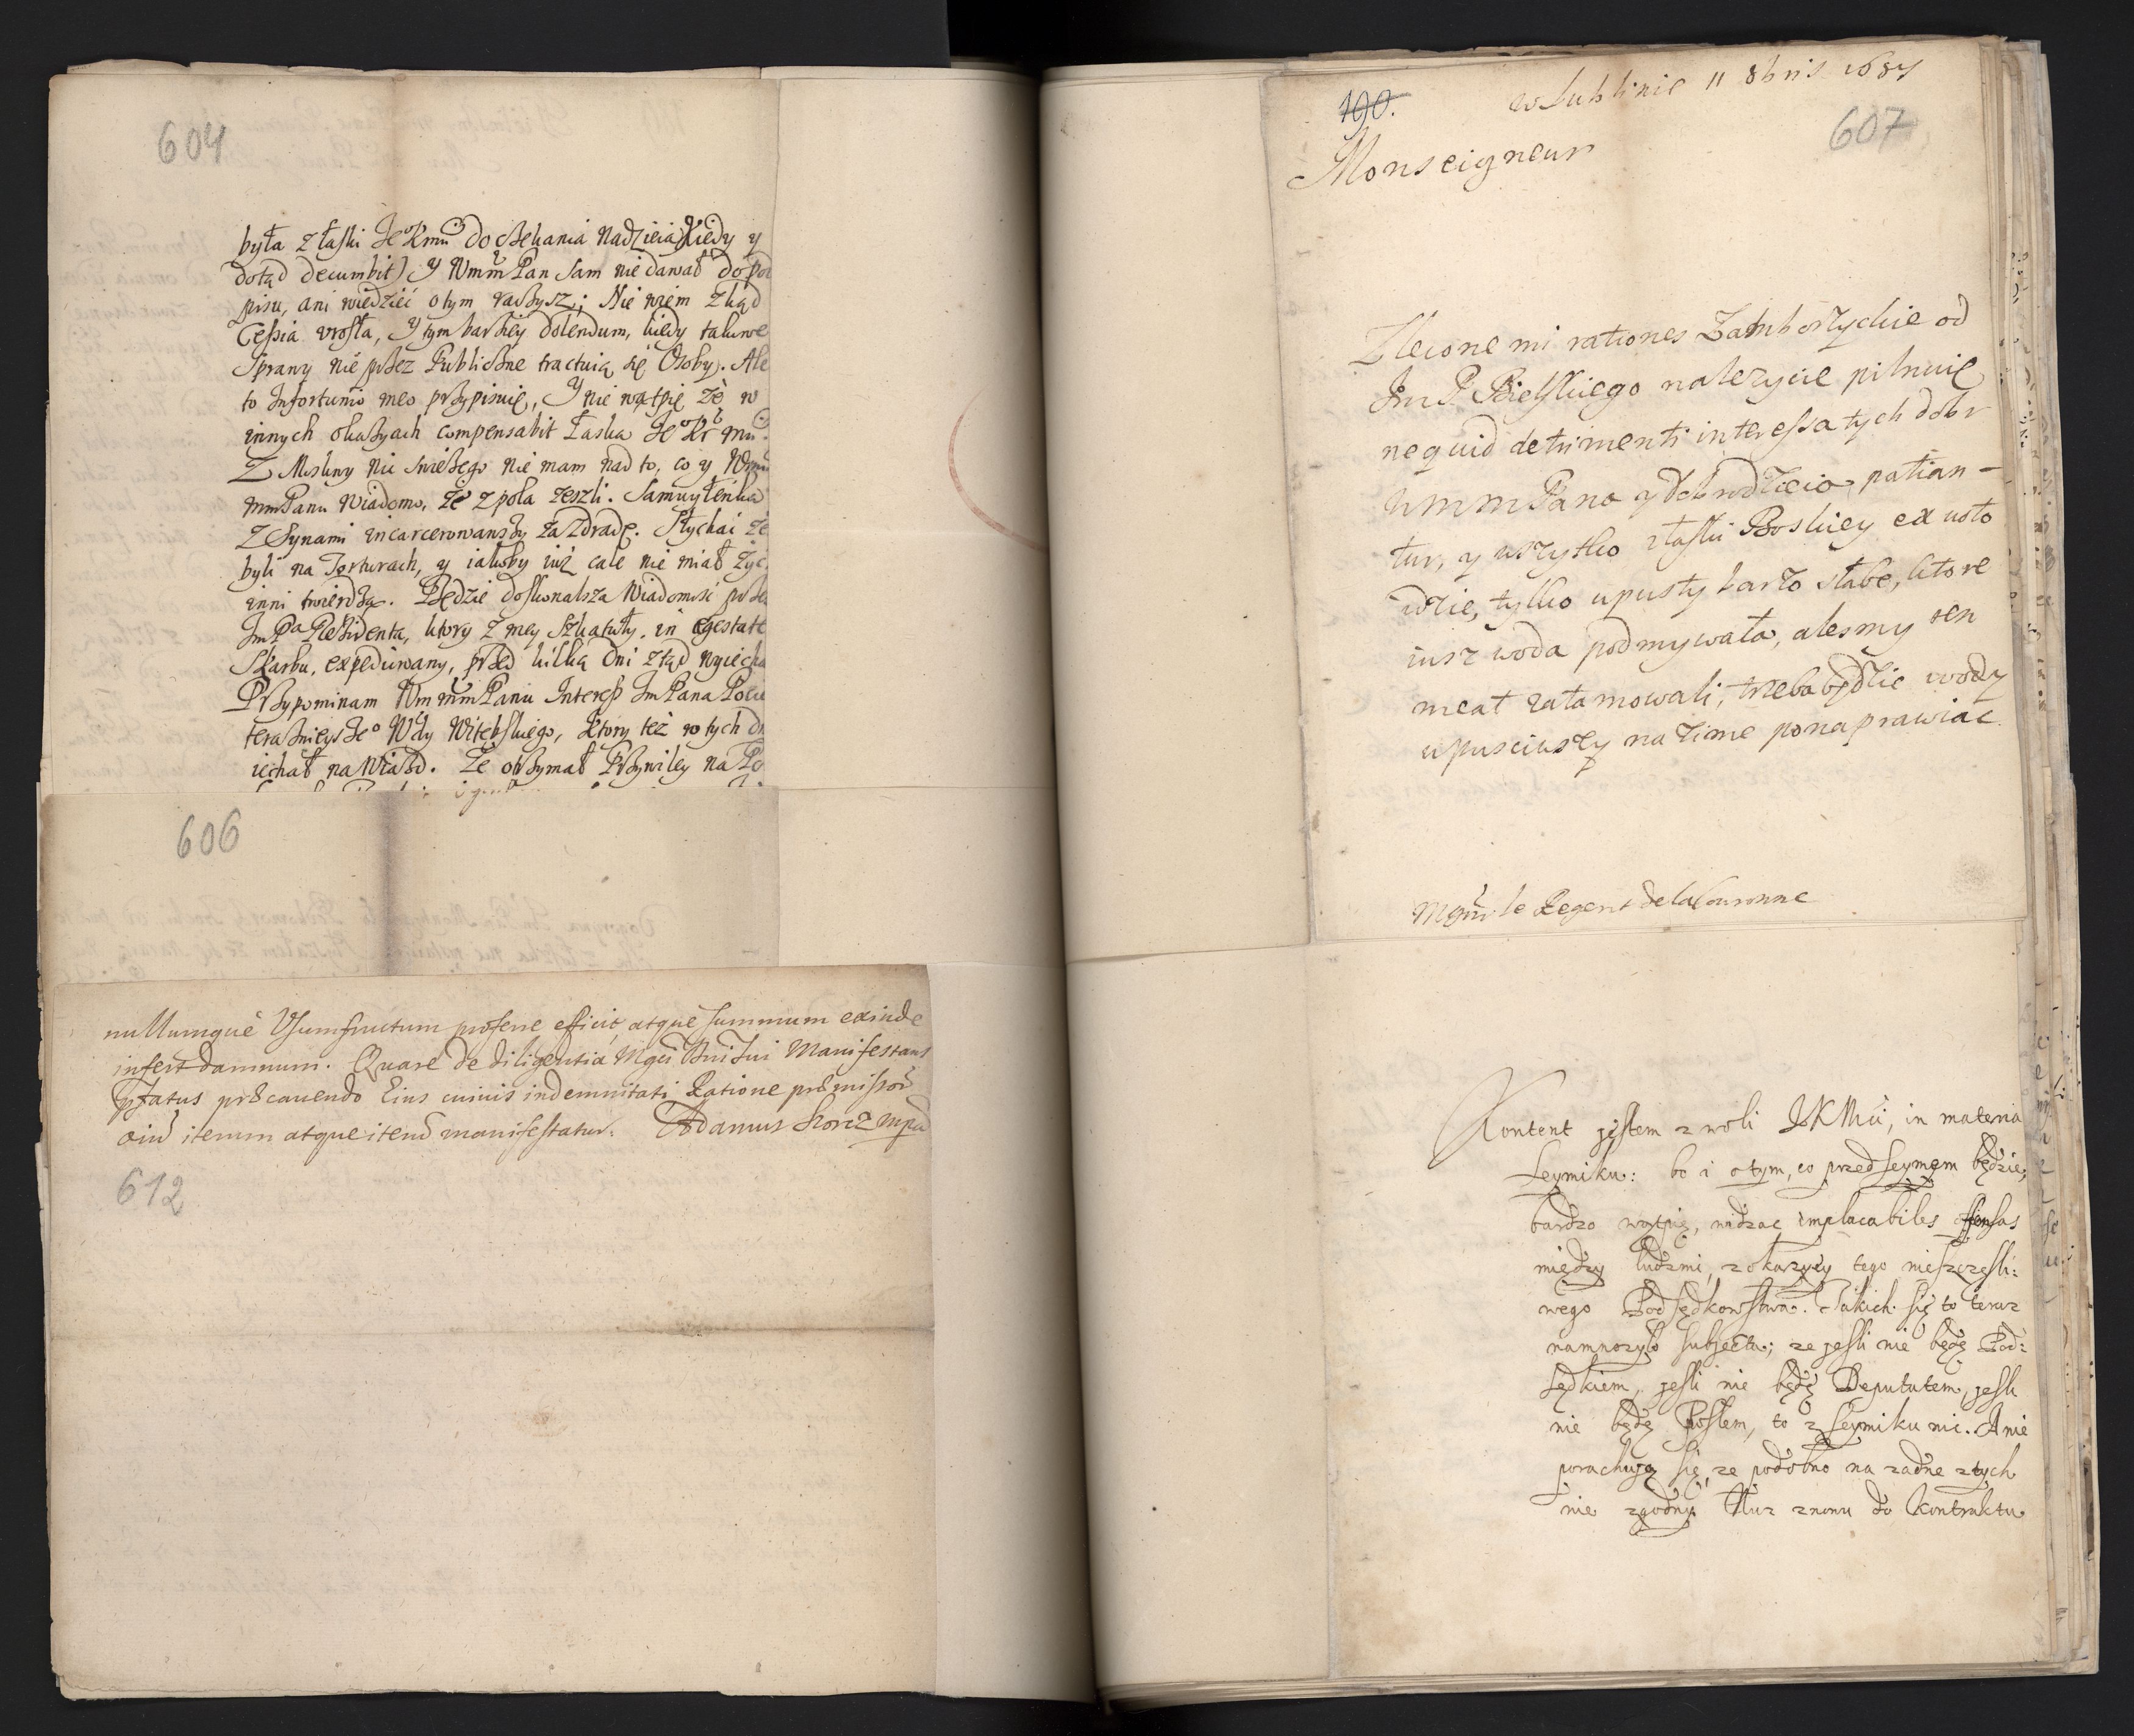 604
była z łaski Je° Kmci doczekania nadzieia Kiedy y
dotąd decumbit) y Wmm Pan sam nie dawał do pod
pisu, ani wiedzieć o tym raczysz; Nie wiem zkąd
Cessia urosła, y tym barziey dolendum, kiedy takowe
Sprawy nie przez Publiczne tractuią się Osoby. Ale
to Infortunio meo przypisuię, y nie wątpię że w
innych okazyach compensabit Łaska Je° Kr Mci
Z Moskwy nic swieżego nie mam nad to, co y Wmm
mmPanu wiadomo, że z pola zeszli. Samuyłenko
z Synami incarcerowanszy za Zdradę. Słychać że
byli na Torturach, y iakoby iuż cale nie miał żyć
inni twierdzą. Będzie doskonalsza Wiadomość przez
Im Pa Residenta, ktory z mey Szkatuły, in egestate
Skarbu, expediowany, przed kilką dni ztąd wyiecha
Przypominam Wm mmPanu Interess Im Pana Pocie
teraznieysze° Wdy Witebskiego, ktory też w tych dn
iechał na Wiazd. Że otrzymał Przywiley na Po
606
nullumque Usumfructum proferre efficit, atque summum exinde
infert damnum. Quare de diligentia Mgci Dni sui Manifestans
pstatus præcavendo Eius cuiuis indemnitati Ratione præmissor
oiu iterum atque iteru manifestatur. Adamus mpa
612
190.
w Lublinie 11 8bris 1687
607
Monseigneur
Zlecone mi rationes Zamborzyckie od
Im P. Bielskiego należycie pilnuię
ne quid detrimenti interessa tych dobr
Wmm Pana y Dobrodzieia patian-
tur, y wszytko z łaski Boskiey ex voto
idzie, tylko upusty barzo słabe, ktore
iusz woda podmywała, alesmy ten
meat zatamowali, trzeba będzie wody
upusciwszy na zime ponaprawiac
Mgnr le Regent de la Couronne
Kontent jestem z woli JKMci, in materia
Seymiku: bo i o tym, co przed seymem będzie,
bardzo wątpię, widząc implacabiles offensas
między ludzmi, z okazyey tego nieszczęsli:
wego Podsędkowstwa. Takich się to teraz
namnożyło subjecta; ze jesli nie będę Pod:
sędkiem, jesli nie będę Deputatem, jesli
nie będę Posłem, to z seymiku nic. A nie
porachują się, ze podobno na zadne z tych
nie zgodny. Nuz znowu do Kontraktu